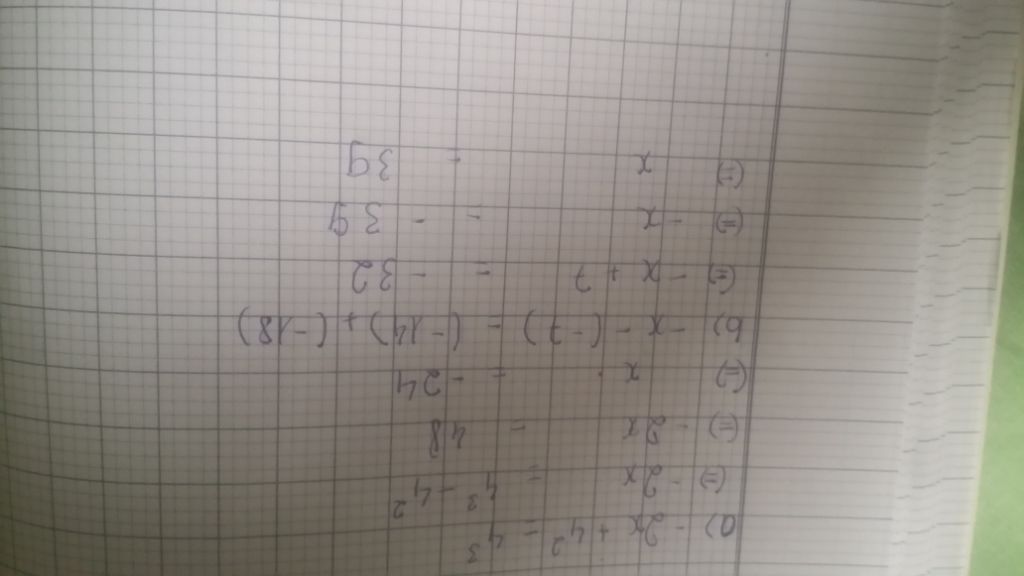 a) -2x + 4² = 4³
(=) -2x = 4³ - 4²
(=) -2x = 48
(=) x = -24
b) -x - (-7) = (-14) + (-18)
(=) -x + 7 = -32
(=) -x = -39
(=) x = 39